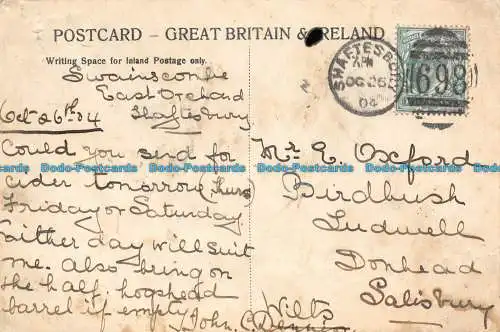 POSTCARD - GREAT BRITAIN & IRELAND
Writing Space for Inland Postage only.
Swainscombe
East Orchard
Shaftesbury
Oct 26th 04
Could you send for
cider tomorrow (Thurs)
Friday or Saturday
either day will suit
me. Also bring on
the half hogshead
barrel if empty
John C
Mr E. Oxford
Birdbush
Ludwell
Donhead
Salisbury
Wilts
SHAFTESBURY
OC 26
04
698
Dodo-Postcards Dodo-Postcards Dodo-Postcards Dodo-Postcards